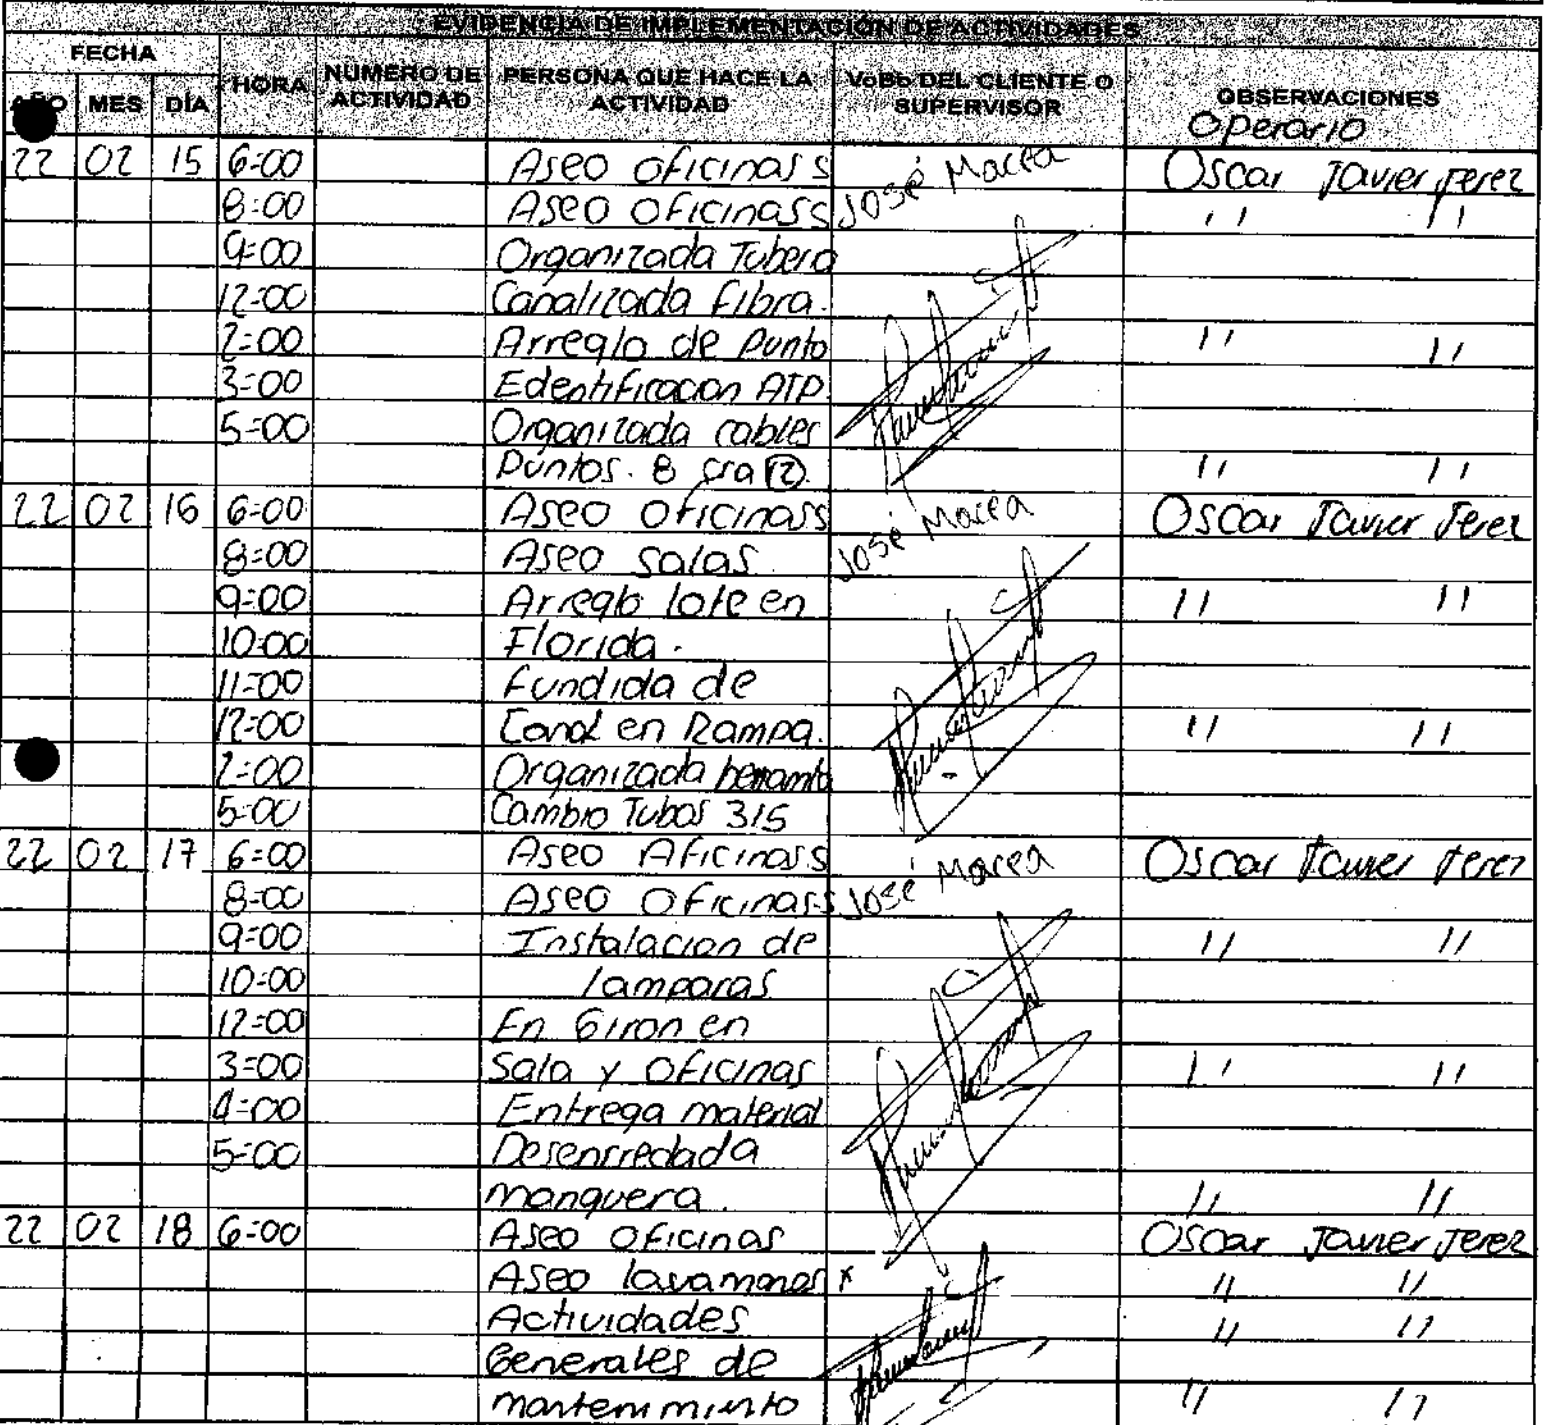 EVIDENCIA DE IMPLEMENTACIÓN DE ACTIVIDADES
FECHA
AÑO MES DÍA HORA NÚMERO DE ACTIVIDAD PERSONA QUE HACE LA ACTIVIDAD VoBo DEL CLIENTE O SUPERVISOR OBSERVACIONES
Operario
22 02 15 6:00 Aseo oficinas s José Macea Oscar Javier Jerez
8:00 Aseo oficinas s " "
9:00 Organizada Tuberia
12:00 Canalizada fibra.
2:00 Arreglo de punto " "
3:00 Edentificacion ATP.
5:00 Organizada cables
Puntos. 8 cra 12. " "
22 02 16 6:00 Aseo oficinas s José Macea Oscar Javier Jerez
8:00 Aseo salas.
9:00 Arreglo lote en " "
10:00 Florida.
11:00 fundida de
12:00 Canal en Rampa. " "
2:00 Organizada
5:00 Cambio Tubos 315
22 02 17 6:00 Aseo Aficinas s José Macea Oscar Javier Jerez
8:00 Aseo Oficinas s
9:00 Instalacion de " "
10:00 lamparas
12:00 En Giron en
3:00 Sala y oficinas " "
4:00 Entrega material
5:00 Desenrredada
manguera. " "
22 02 18 6:00 Aseo oficinas Oscar Javier Jerez
Aseo lavamanos x " "
Actividades " "
Generales de
mantenimiento " "